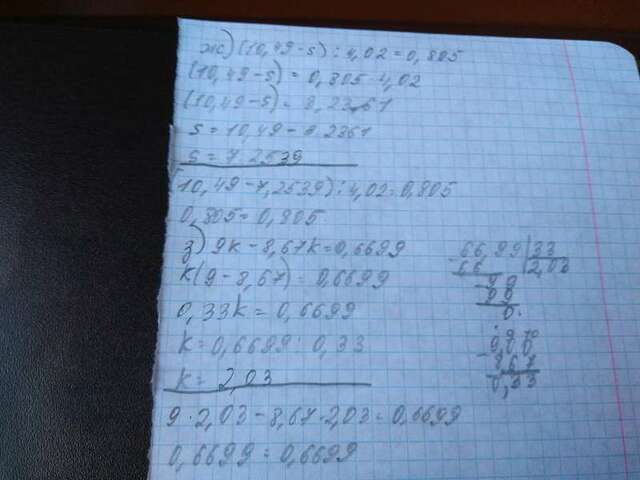 ж) (10,49-s) : 4,02 = 0,805
(10,49-s) = 0,805 · 4,02
(10,49-s) = 3,2361
s = 10,49 - 3,2361
s = 7,2539
(10,49 - 7,2539) : 4,02 = 0,805
0,805 = 0,805
з) 9k - 8,67k = 0,6699
k(9 - 8,67) = 0,6699
0,33k = 0,6699
k = 0,6699 : 0,33
k = 2,03
9 · 2,03 - 8,67 · 2,03 = 0,6699
0,6699 = 0,6699
66,99 | 33
66 2,03
99
99
0
9,00
8,67
0,33